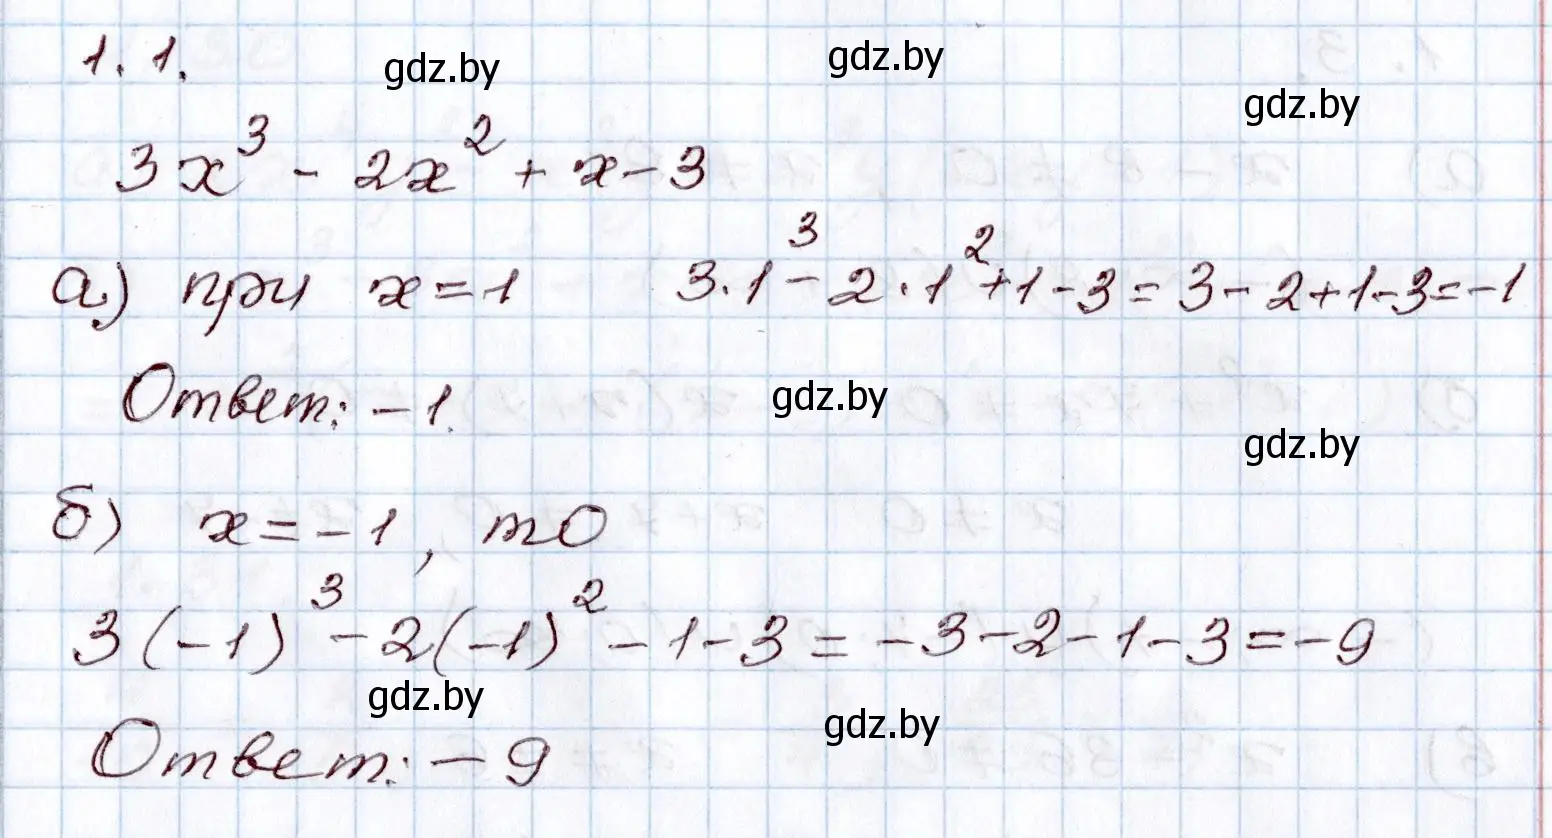 1.1.
gdz.by
gdz.by
gdz.by
3x³ - 2x² + x - 3
а) при x = 1 3·1³ - 2·1² + 1 - 3 = 3 - 2 + 1 - 3 = -1
Ответ: -1.
gdz.by
gdz.by
б) x = -1, то
3(-1)³ - 2(-1)² - 1 - 3 = -3 - 2 - 1 - 3 = -9
gdz.by
gdz.by
Ответ: -9